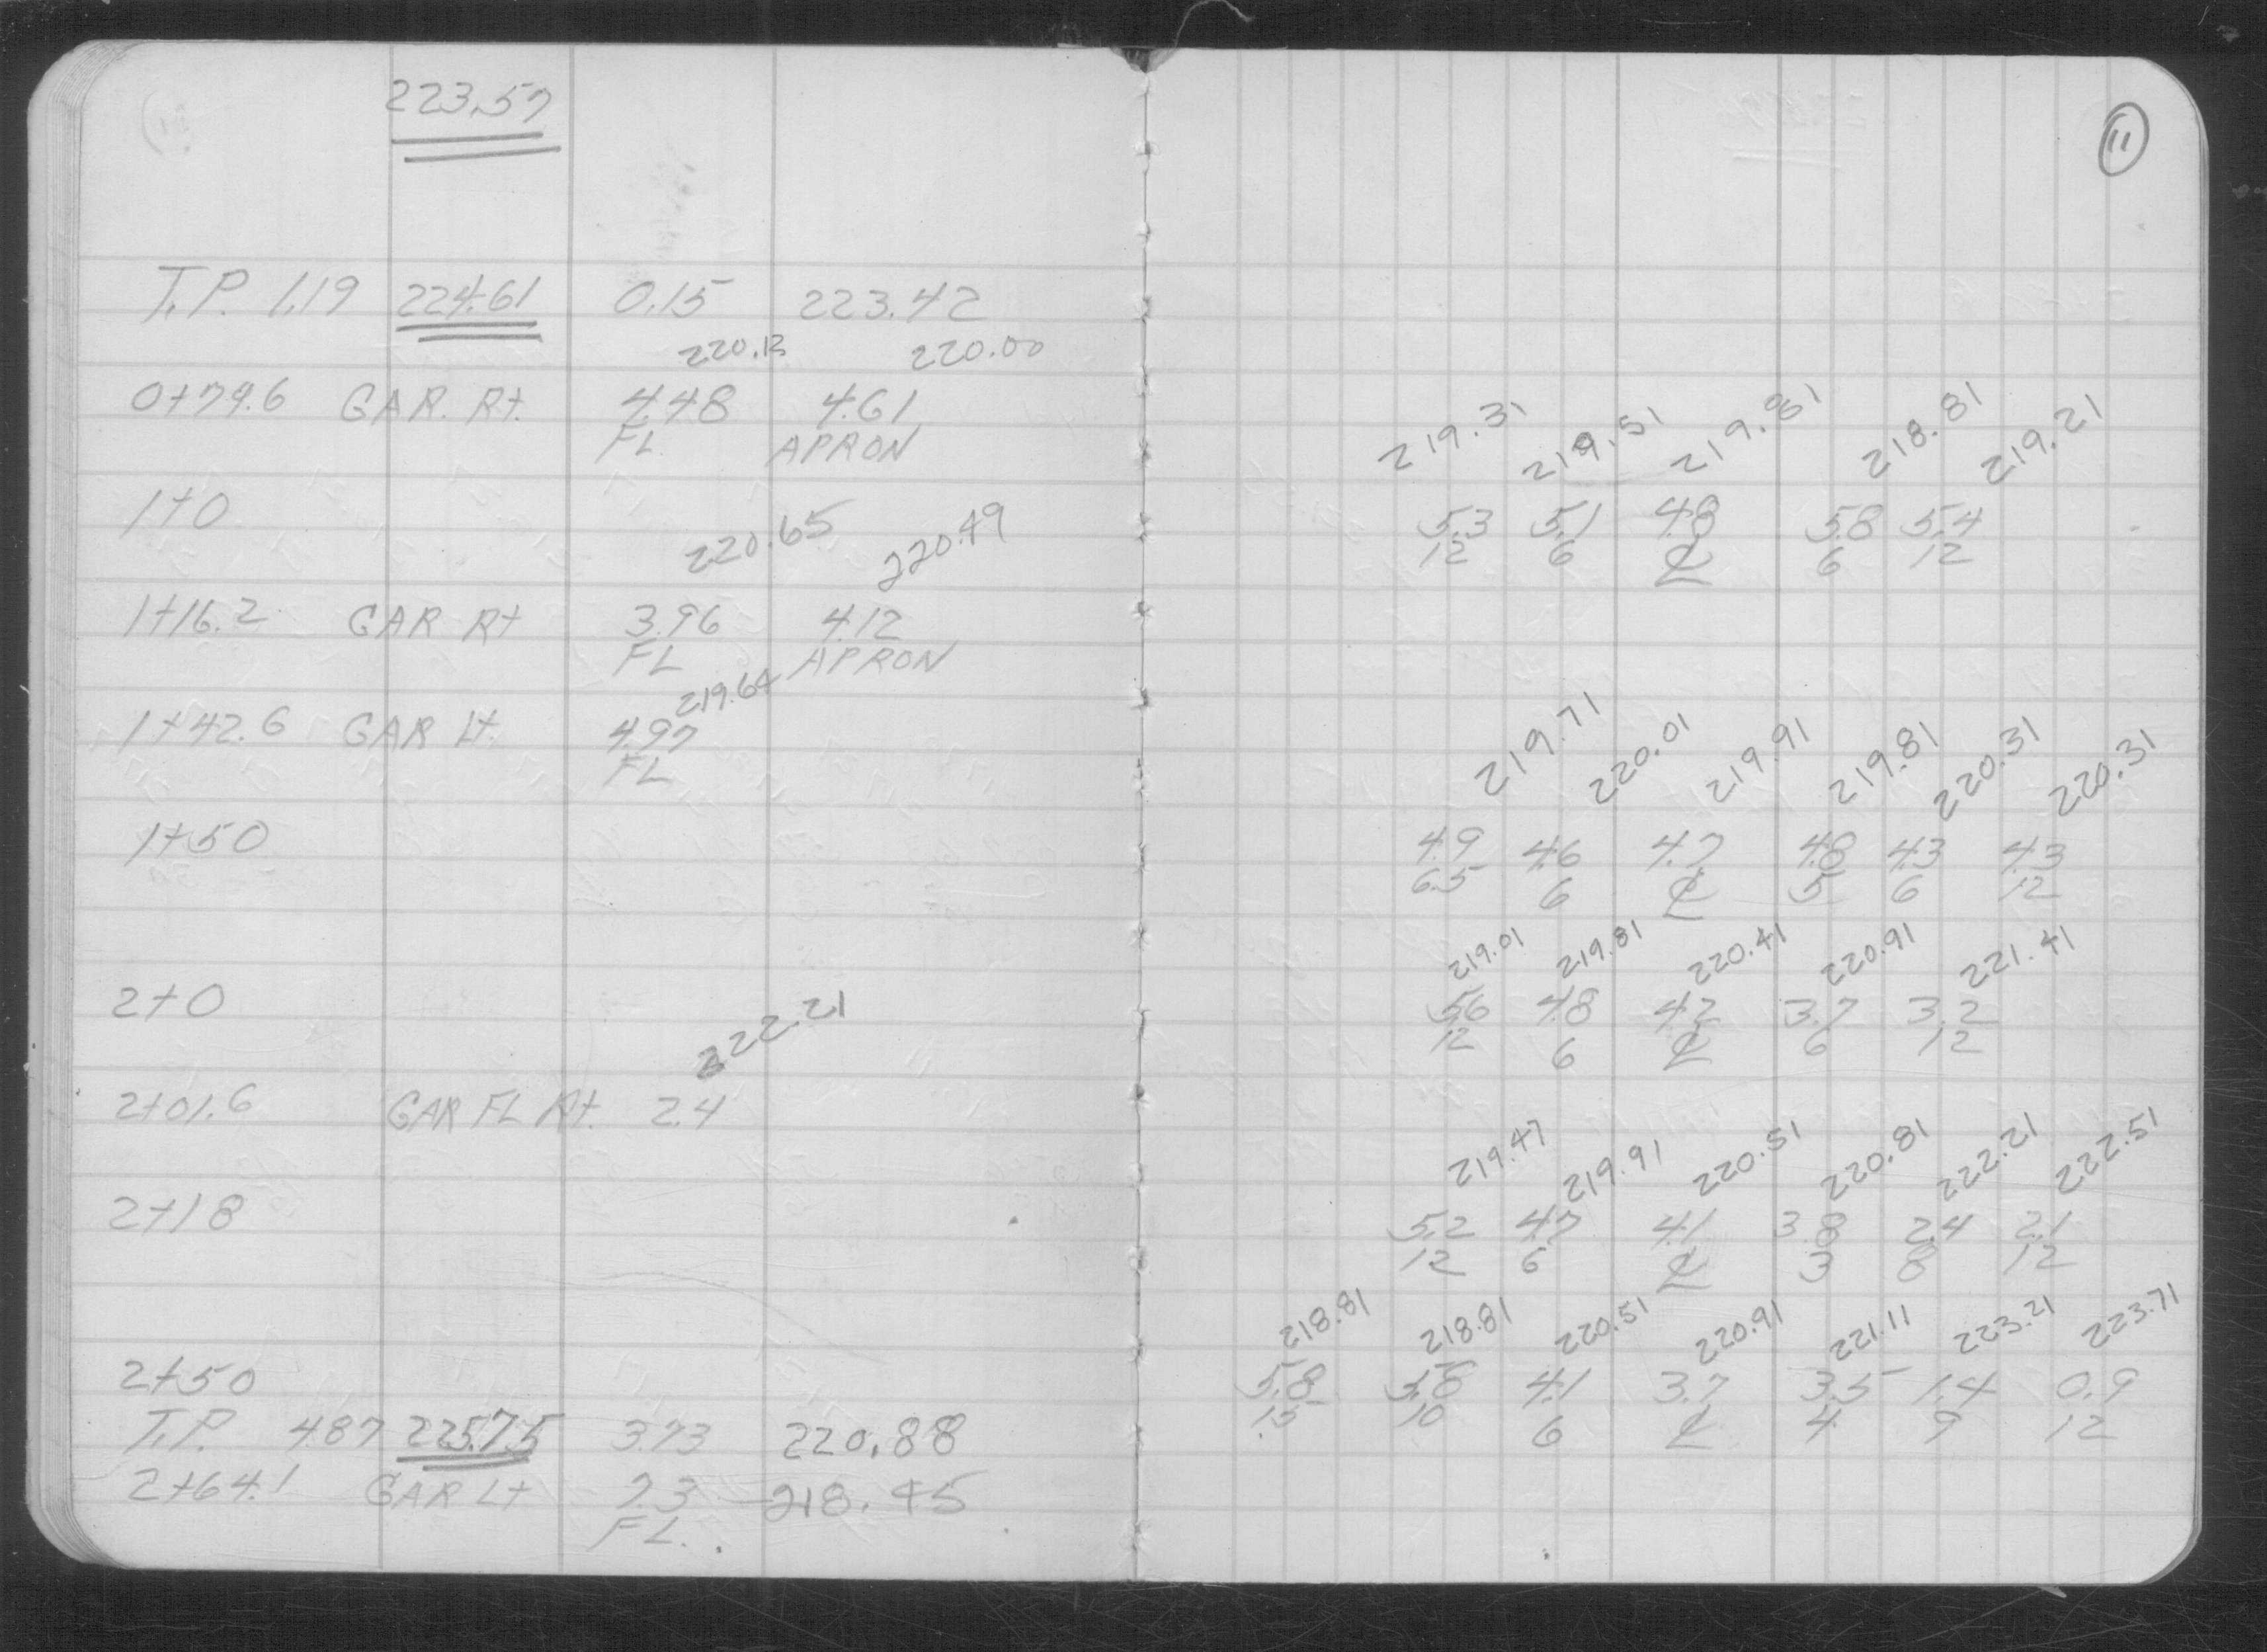 223.57
T.P. 1.19 224.61 0.15 223.42
220.13 220.00
0+79.6 GAR. Rt. 4.48 4.61
FL. APRON
1+0
220.65 220.49
1+16.2 GAR Rt 3.96 4.12
FL APRON
219.64
1+42.6 GAR Lt. 4.97
FL
1+50
2+0
222.21
2+01.6 GAR FL Rt. 2.4
2+18
2+50
T.P. 4.87 225.75 3.73 220.88
2+64.1 GAR Lt 7.3 218.45
FL.
11
219.31 219.51 219.81 218.81 219.21
5.3 5.1 4.8 5.8 5.4
12 6 ℄ 6 12
219.71 220.01 219.91 219.81 220.31 220.31
4.9 4.6 4.7 4.8 4.3 4.3
6.5 6 ℄ 5 6 12
219.01 219.81 220.41 220.91 221.41
5.6 4.8 4.2 3.7 3.2
12 6 ℄ 6 12
219.47 219.91 220.51 220.81 222.21 222.51
5.2 4.7 4.1 3.8 2.4 2.1
12 6 ℄ 3 8 12
218.81 218.81 220.51 220.91 221.11 223.21 223.71
5.8 5.8 4.1 3.7 3.5 1.4 0.9
15 10 6 ℄ 4 9 12